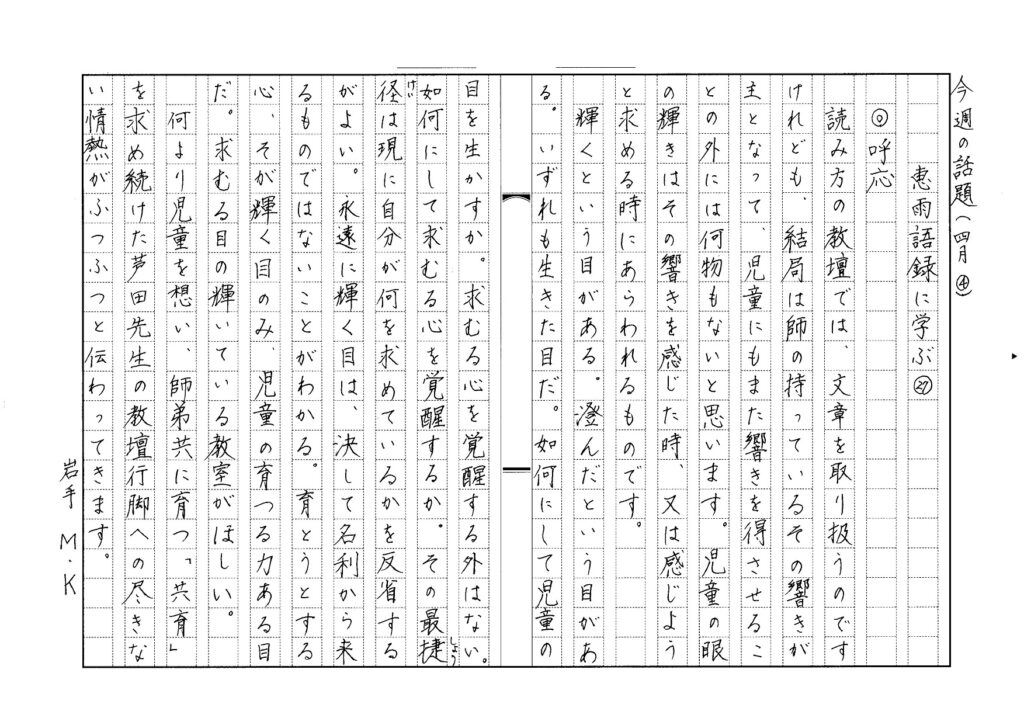 今週の話題(四月④)
恵雨語録に学ぶ㉗
◎呼応
読み方の教壇では、文章を取り扱うのです
けれども、結局は師の持っているその響きが
主となって、児童にもまた響きを得させるこ
との外には何物もないと思います。児童の眼
の輝きはその響きを感じた時、又は感じよう
と求める時にあらわれるものです。
輝くという目がある。澄んだという目があ
る。いずれも生きた目だ。如何にして児童の
目を生かすか。求むる心を覚醒する外はない。
如何にして求むる心を覚醒するか。その最捷しょう
径けいは現に自分が何を求めているかを反省する
がよい。永遠に輝く目は、決して名利から来
るものではないことがわかる。育とうとする
心、そが輝く目のみ、児童の育つる力ある目
だ。求むる目の輝いている教室がほしい。
何より児童を想い、師弟共に育つ「共育」
を求め続けた芦田先生の教壇行脚への尽きな
い情熱がふつふつと伝わってきます。
岩手 M・K